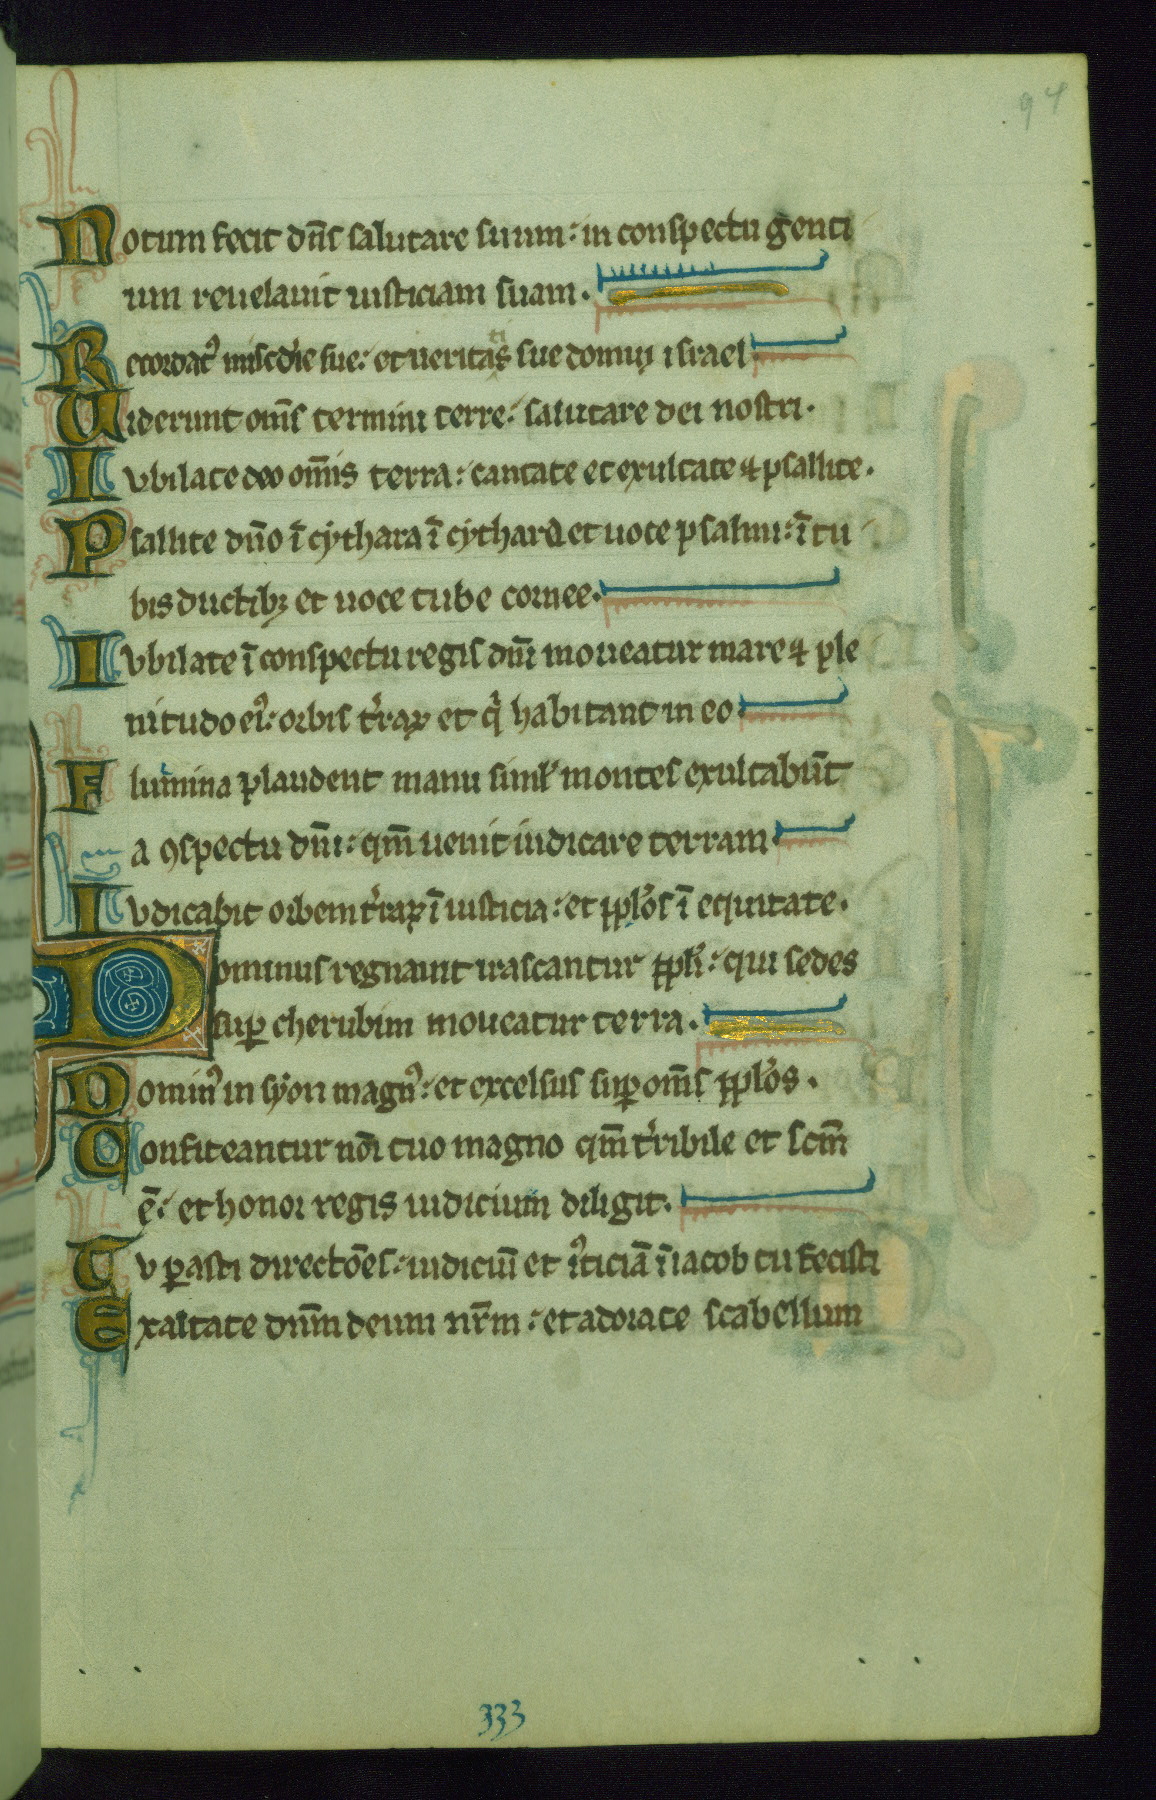 94
Notum fecit dn̄s salutare suum: in conspectu genti
um reuelauit iusticiam suam.
Recordat᾿ misc̄die sue: et ueritatis sue domui israel
Uiderunt om̄s termini terre: salutare dei nostri.
Iubilate deo om̄is terra: cantate et exultate ⁊ psallite.
Psallite dn̄o ī cythara ī cythara et uoce psalmi: ī tu
bis ductibꝫ et uoce tube cornee.
Iubilate ī conspectu regis dn̄i moueatur mare ⁊ ple
nitudo ei᾿: orbis t᾿raꝝ et q̇ habitant in eo
Flumina plaudent manu simł montes exultabūt
a ꝯspectu dn̄i: qm̄ uenit iudicare terram
Iudicabit orbem t᾿raꝝ ī iusticia: et pp̄los ī equitate.
Dominus regnauit irascantur pp̄li: qui sedes
suꝑ cherubim moueatur terra.
Domin᾿ in syon magn᾿: et excelsus suꝑ om̄s pp̄los.
Confiteantur nōi tuo magno qm̄ t᾿ribile et scm̄
ē: et honor regis iudicium diligit.
Tu ꝑasti directōes: iudiciū et i᾿ticiā ī iacob tu fecisti
Exaltate dn̄m deum nr̄m: et adorate scabellum
333